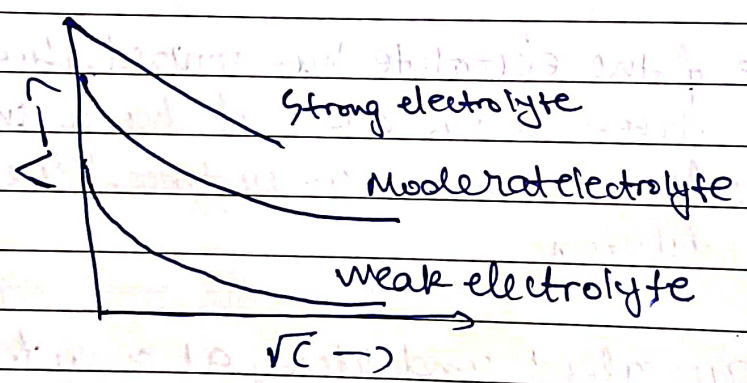 Strong electrolyte
Moderatelectrolyte
Λ →
weak electrolyte
√C →